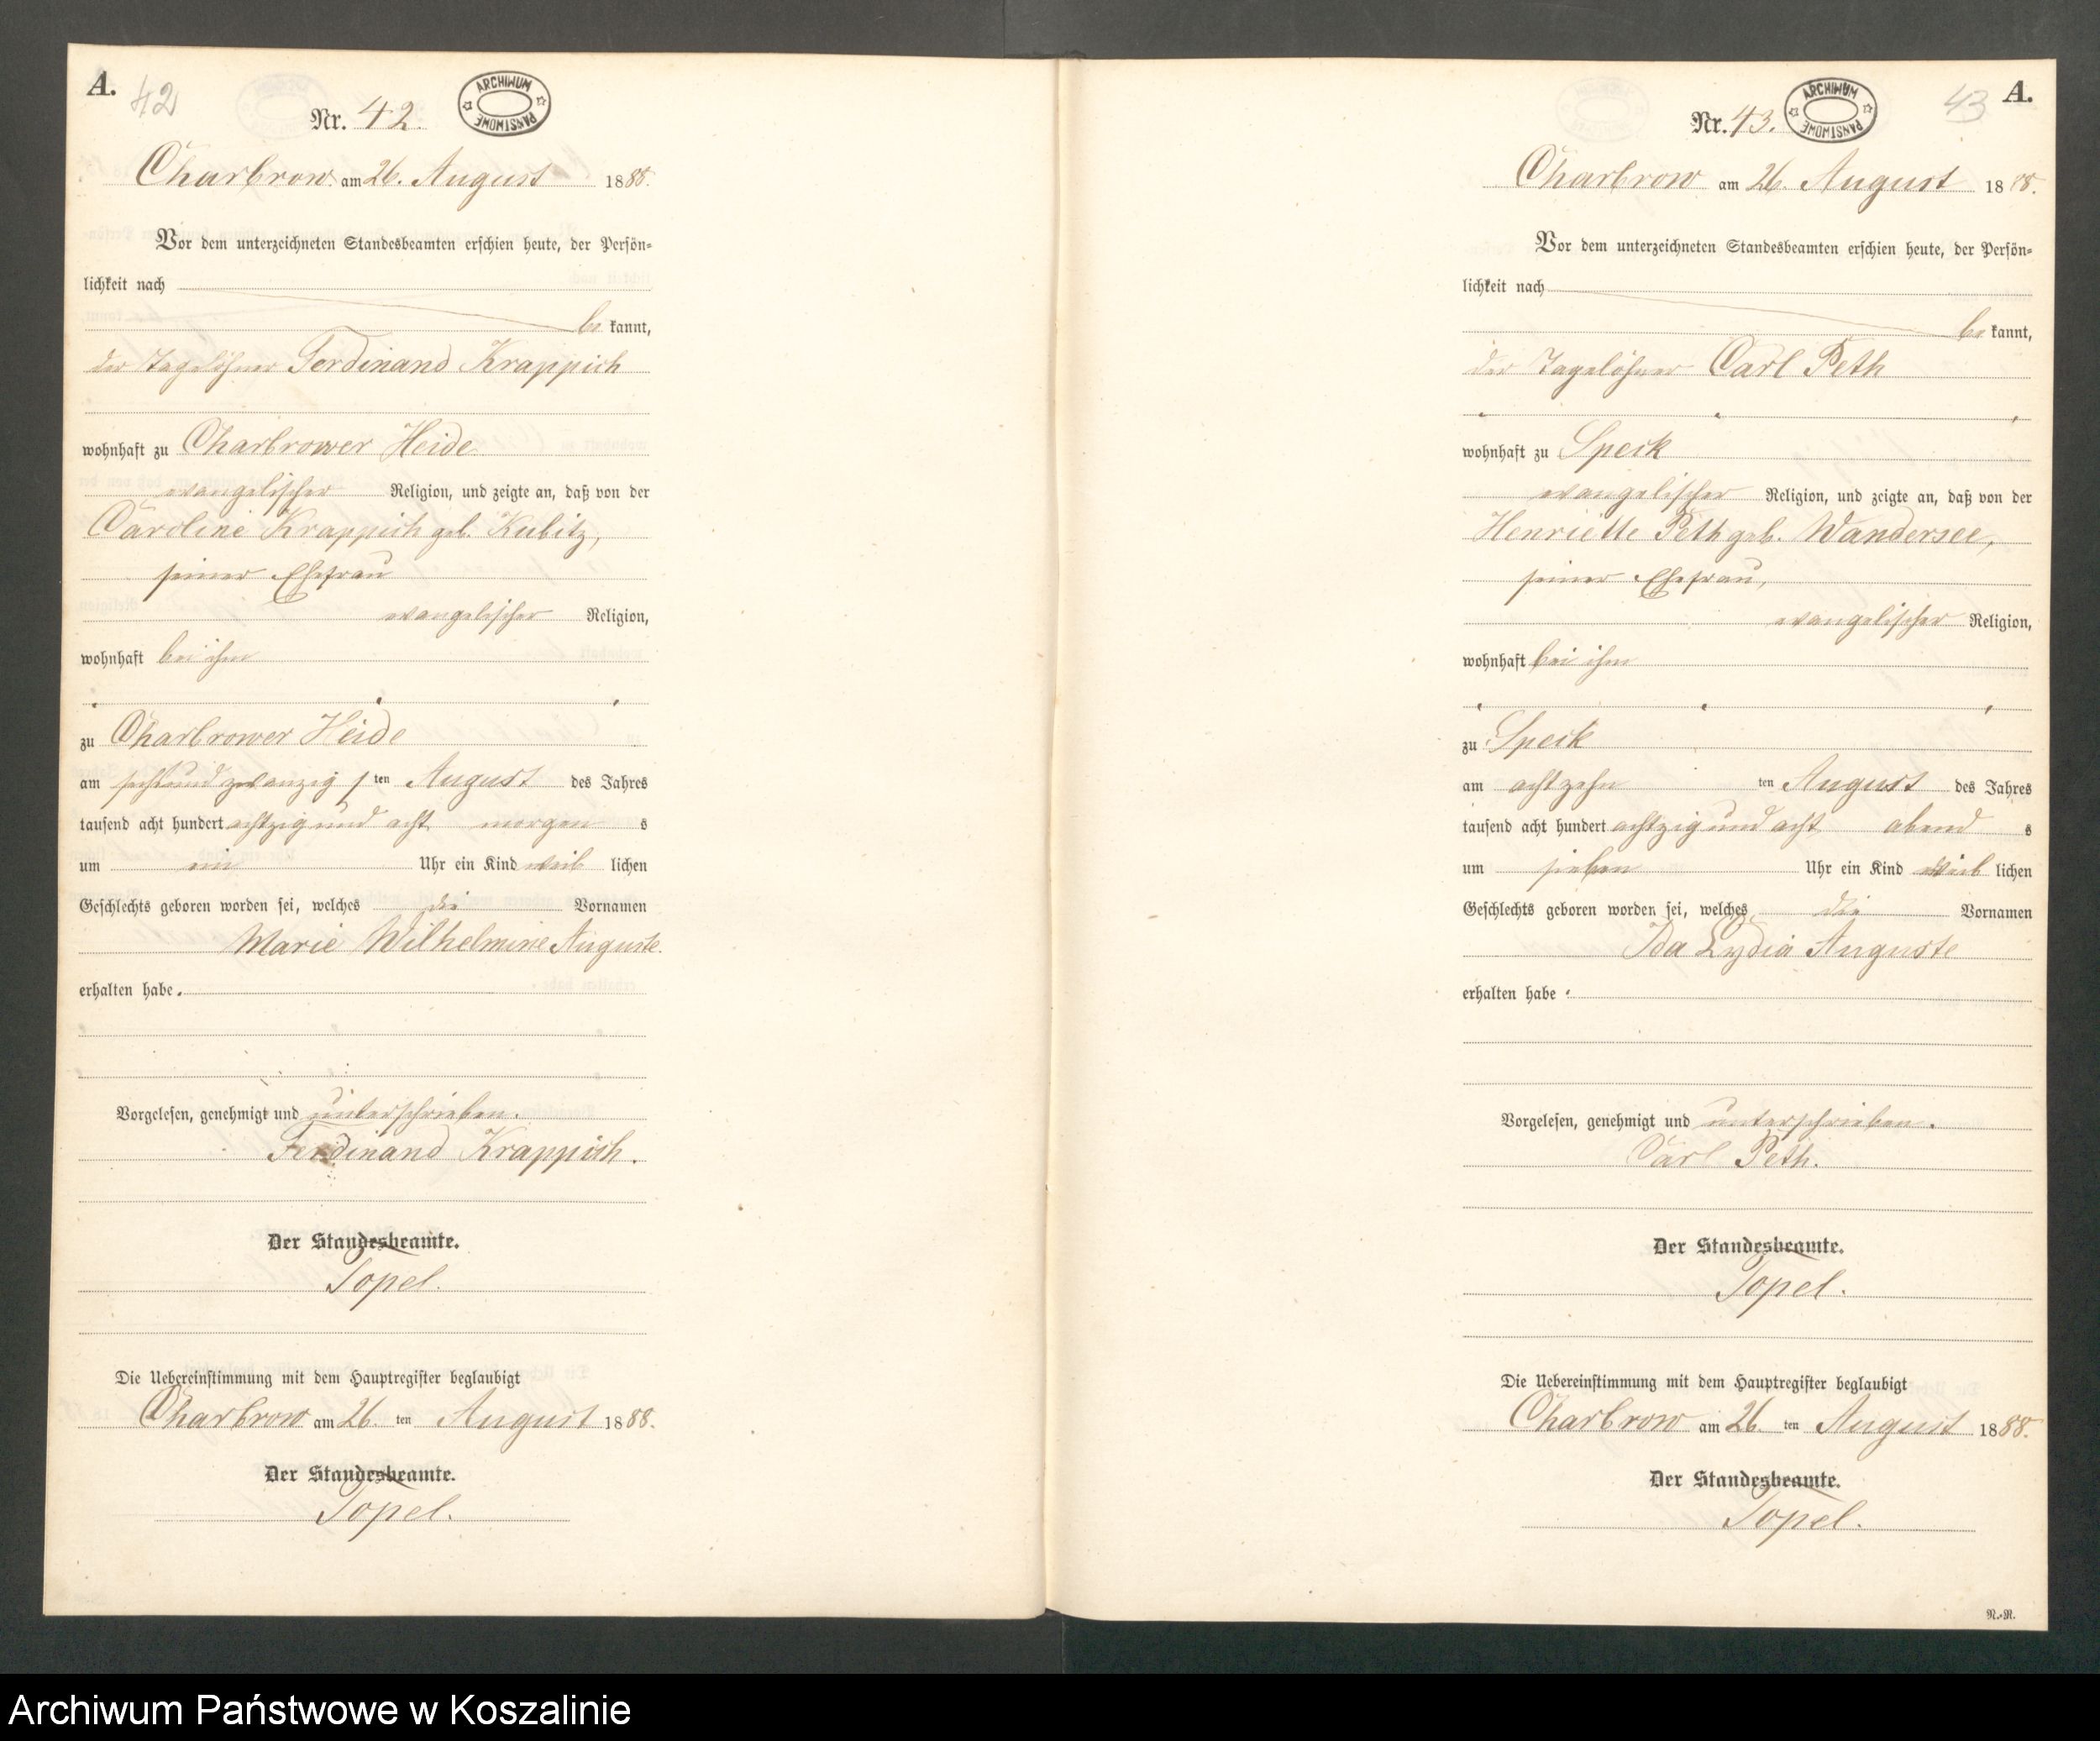 A.
42
Nr. 42.
ARCHIWUM PAŃSTWOWE
Charbrow am 26. August 1888.
Vor dem unterzeichneten Standesbeamten erschien heute, der Persön-
lichkeit nach
be kannt,
der Tagelöhner Ferdinand Krappich
wohnhaft zu Charbrower Heide
evangelischer Religion, und zeigte an, daß von der
Caroline Krappich geb. Kubitz,
seiner Ehefrau
evangelischer Religion,
wohnhaft bei ihm
zu Charbrower Heide
am sechsundzwanzig ten August des Jahres
tausend acht hundert achtzig und acht morgen s
um ein Uhr ein Kind weib lichen
Geschlechts geboren worden sei, welches die Vornamen
Marie Wilhelmine Auguste.
erhalten habe.
Vorgelesen, genehmigt und unterschrieben.
Ferdinand Krappich.
Der Standesbeamte.
Topel.
Die Uebereinstimmung mit dem Hauptregister beglaubigt
Charbrow am 26. ten August 1888.
Der Standesbeamte.
Topel.
A.
43
Nr. 43.
ARCHIWUM PAŃSTWOWE
Charbrow am 26. August 1888.
Vor dem unterzeichneten Standesbeamten erschien heute, der Persön-
lichkeit nach
be kannt,
der Tagelöhner Carl Peth
wohnhaft zu Speck
evangelischer Religion, und zeigte an, daß von der
Henriette Peth geb. Wandersee,
seiner Ehefrau,
evangelischer Religion,
wohnhaft bei ihm
zu Speck
am achtzehn ten August des Jahres
tausend acht hundert achtzig und acht abend s
um sieben Uhr ein Kind weib lichen
Geschlechts geboren worden sei, welches die Vornamen
Ida Lydia Auguste
erhalten habe.
Vorgelesen, genehmigt und unterschrieben.
Carl Peth.
Der Standesbeamte.
Topel.
Die Uebereinstimmung mit dem Hauptregister beglaubigt
Charbrow am 26. ten August 1888.
Der Standesbeamte.
Topel.
N.-N.
Archiwum Państwowe w Koszalinie